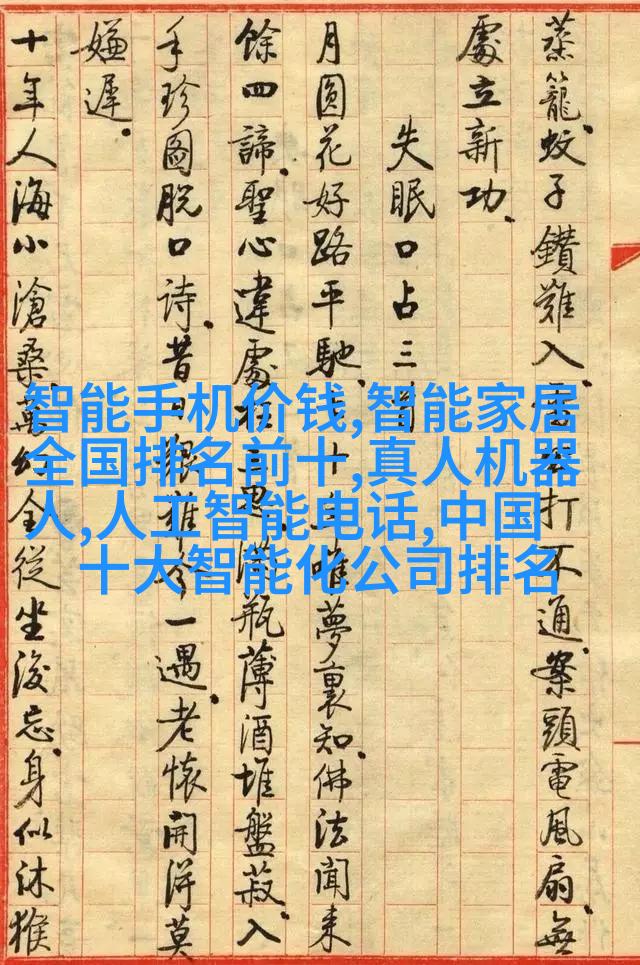 蒸籠.蚊子鑽難入.打不通.案頭電風扇.無
處立新功.
失眠口占三首
月圓花好路平馳.十年唯夢裏知.佛法聞来
餘四諦.聖心違處在三思.滿瓶薄酒堆盤菽.入
手珍圖脱口詩.昔日艱難今一遇.老懷開得莫
嫌遲.
十年人海小滄桑.萬幻全從坐後忘.身似沐猴
智能手机价钱,智能家居
全国排名前十,真人机器
人,人工智能电话,中国
十大智能化公司排名